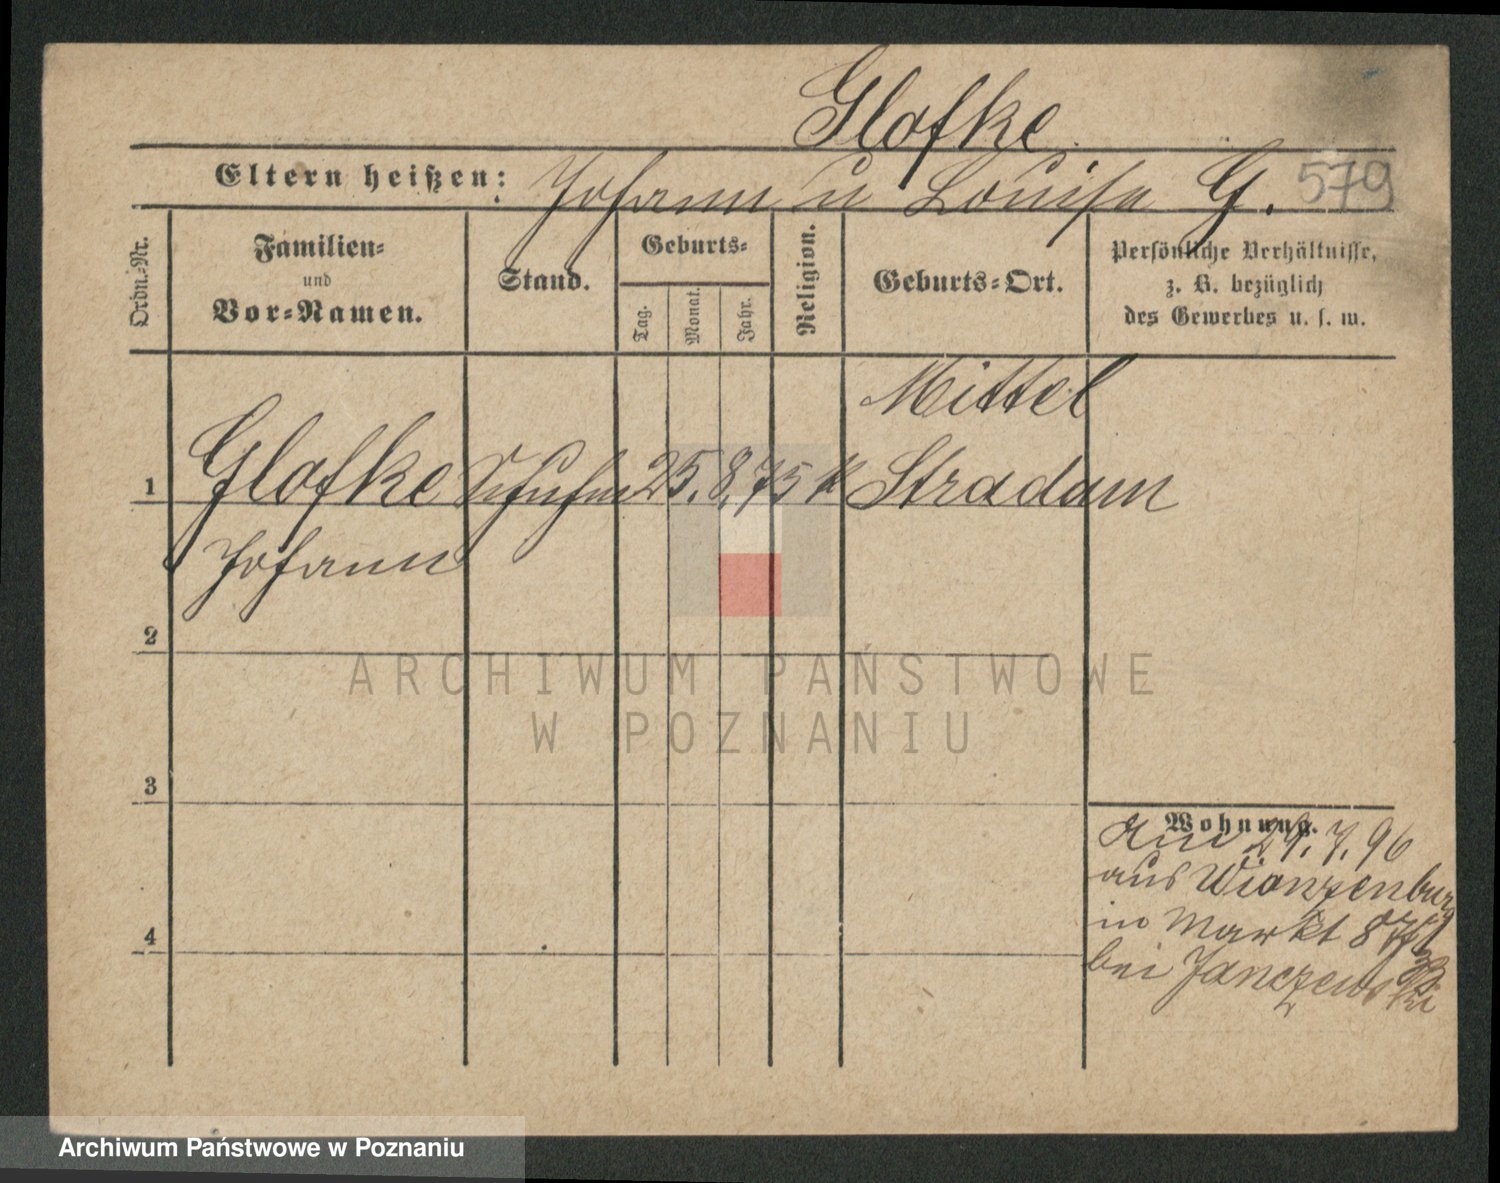 Glofke
Eltern heißen: Johann u Louise G. 579
Ordn.-Nr.
Familien-
und
Vor-Namen.
Stand.
Geburts-
Tag.
Monat.
Jahr.
Religion.
Geburts-Ort.
Persönliche Verhältnisse,
z. B. bezüglich
des Gewerbes u. s. w.
Mittel
1 Glofke Schuhm 25. 8. 75 k Stradam
Johann
2
3
4
Wohnung.
29. 7. 96
aus
in Markt
bei Janczewski
ARCHIWUM PAŃSTWOWE
W POZNANIU
Archiwum Państwowe w Poznaniu